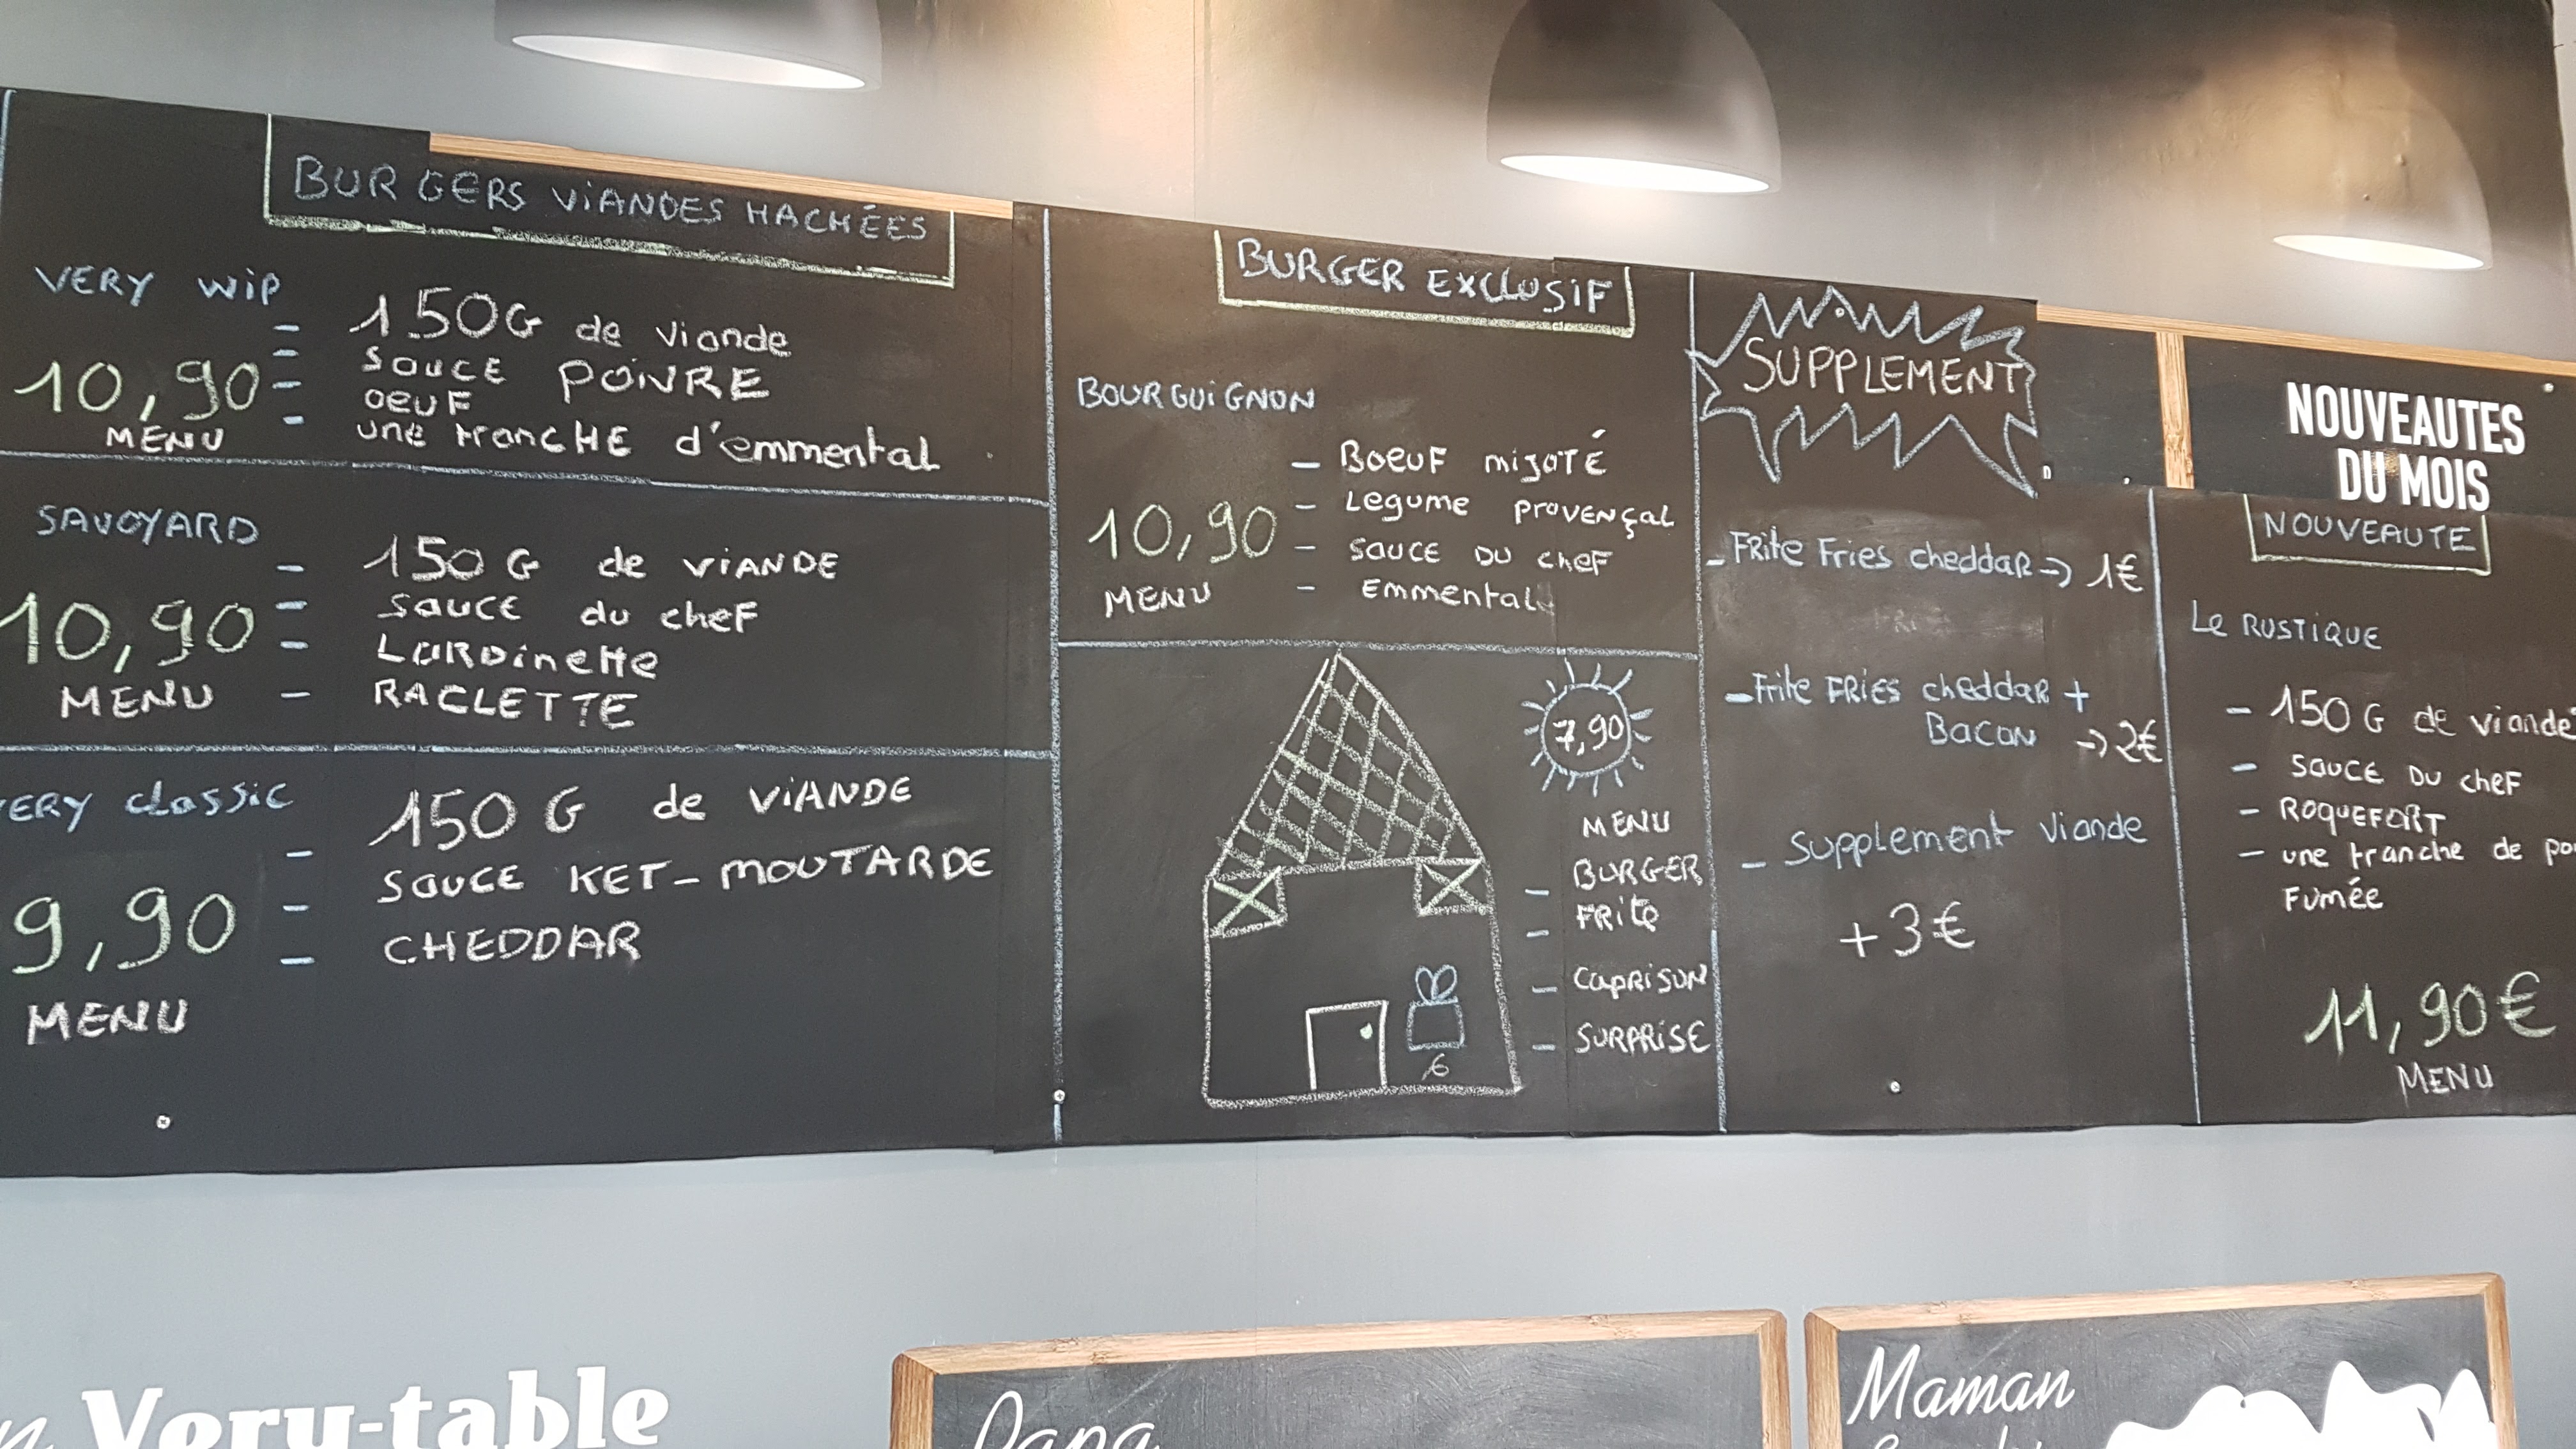 BURGERS VIANDES HACHÉES
VERY WIP
- 150G de viande
- SAUCE POIVRE
- OEUF
- une tranCHE d'emmental
10,90
MENU
SAVOYARD
- 150 G de VIANDE
- SAUCE du cheF
- LARDinette
- RACLETTE
10,90
MENU
ERY classic
- 150 G de VIANDE
- SAUCE KET-MOUTARDE
- CHEDDAR
9,90
MENU
BURGER EXCLUSIF
BOURGUIGNON
- BOEUF mijOTÉ
- Legume PROVENÇAL
- SAUCE DU cheF
- Emmental
10,90
MENU
7,90
MENU
- BURGER
- FRite
- CAPRISUN
- SURPRISE
6
SUPPLEMENT
- FRite Fries cheddaR -> 1€
- Frite FRIES cheddar +
BACON -> 2€
- Supplement Viande
+3€
NOUVEAUTES
DU MOIS
NOUVEAUTE
Le RUSTIQUE
- 150 G de viande
- SAUCE DU cheF
- ROQUEFORT
- une tranche de po
Fumée
11,90€
MENU
n Very-table
Papa
Maman